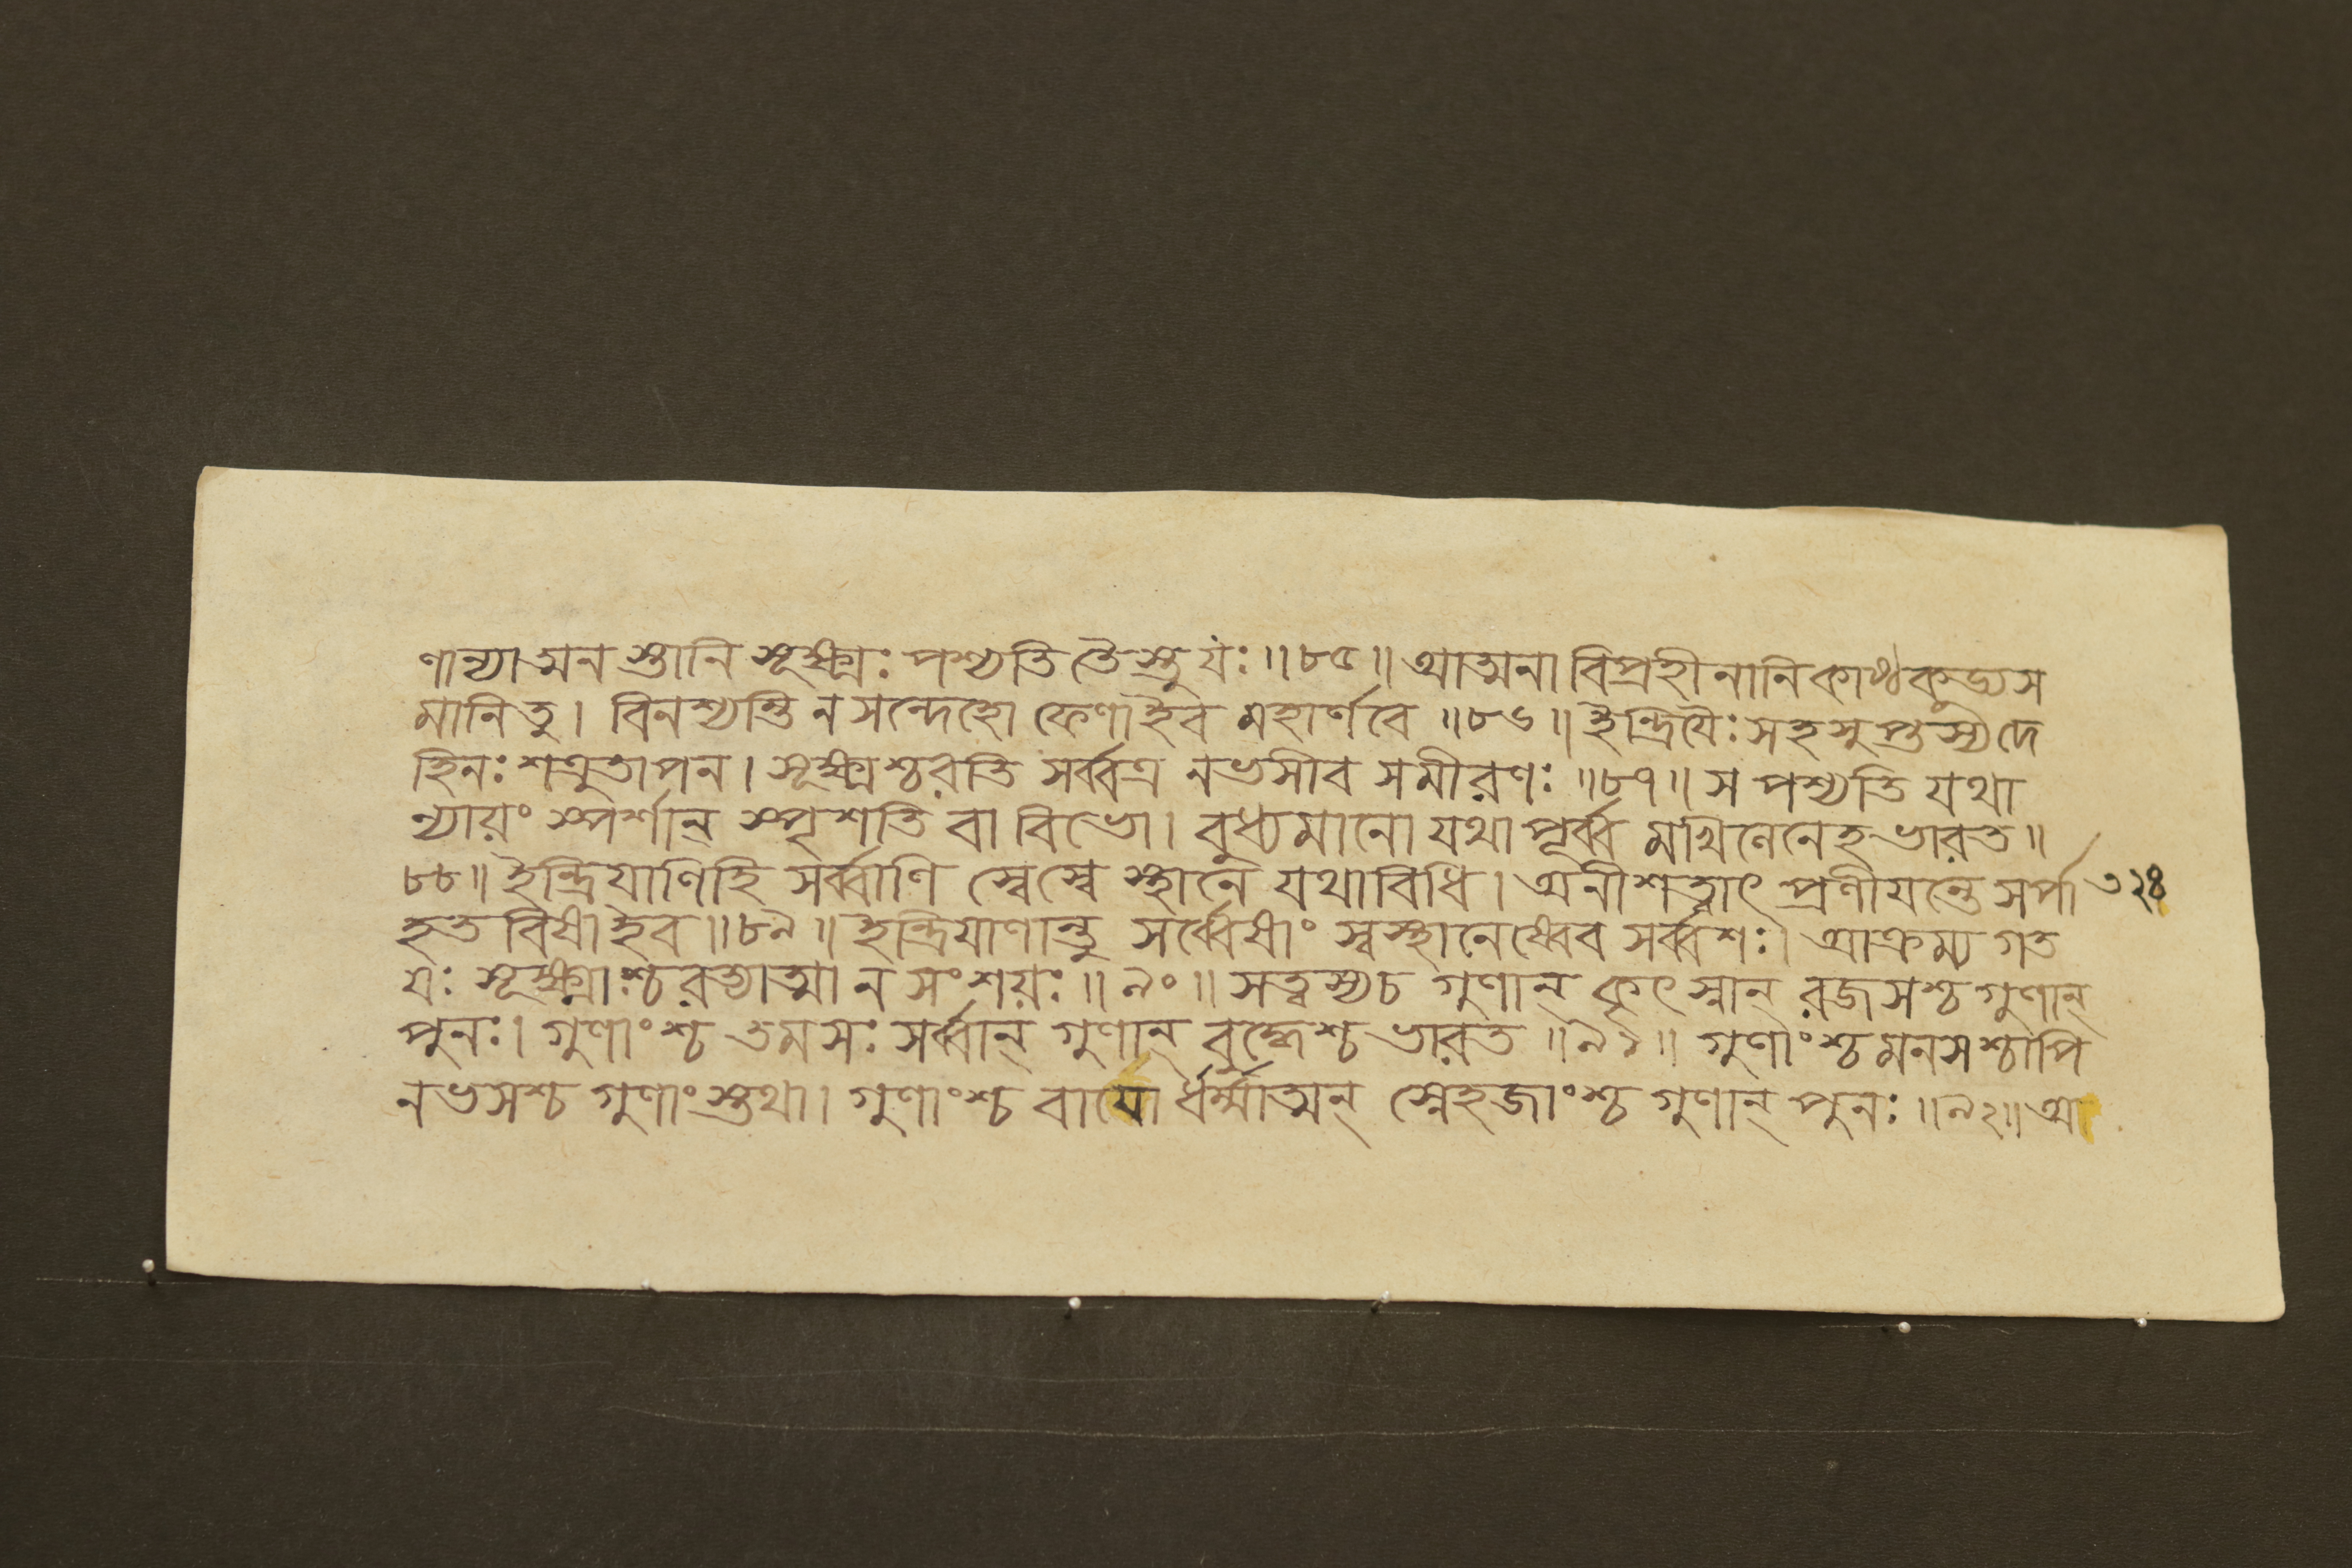 ণান্যাত্মন স্তানি সূক্ষ্মঃ পশ্যতি তৈস্তু যঃ ॥৮৫॥ আত্মনা বিপ্রহীনানি কাষ্ঠকুড্যস
মানি তু। বিনশ্যন্তি ন সন্দেহো ফেণাইব মহার্ণবে ॥৮৬॥ ইন্দ্রিয়ৈঃ সহ সুপ্তস্য দে
হিনঃ শত্রুতাপন। সূক্ষ্মশ্চরতি সর্ব্বত্র নভসীব সমীরণঃ ॥৮৭॥ স পশ্যতি যথা
ন্যায়ং স্পর্শান্ স্পৃশতি বা বিভো। বুধ্যমানো যথা পূর্ব্ব মখিলেনেহ ভারত ॥
৮৮॥ ইন্দ্রিয়াণিহি সর্ব্বাণি স্বেস্বে স্থানে যথাবিধি। অনীশত্বাৎ প্রণীয়ন্তে সর্পা ৩২৪
হত বিষাইব ॥৮৯॥ ইন্দ্রিয়াণান্তু সর্ব্বেষাং স্বস্থানেষ্বেব সর্ব্বশঃ। আক্রম্য গত
যঃ সূক্ষ্মাশ্চরত্যাত্মা ন সংশয়ঃ ॥৯০॥ সত্ত্বস্যচ গুণান্ কৃৎস্নান্ রজসশ্চ গুণান্
পুনঃ। গুণাংশ্চ তমসঃ সর্ব্বান্ গুণান্ বুদ্ধেশ্চ ভারত ॥৯১॥ গুণাংশ্চ মনসশ্চাপি
নভসশ্চ গুণাংস্তথা। গুণাংশ্চ বায়ো র্ধর্ম্মাত্মন্ স্নেহজাংশ্চ গুণান্ পুনঃ ॥৯২॥ অ